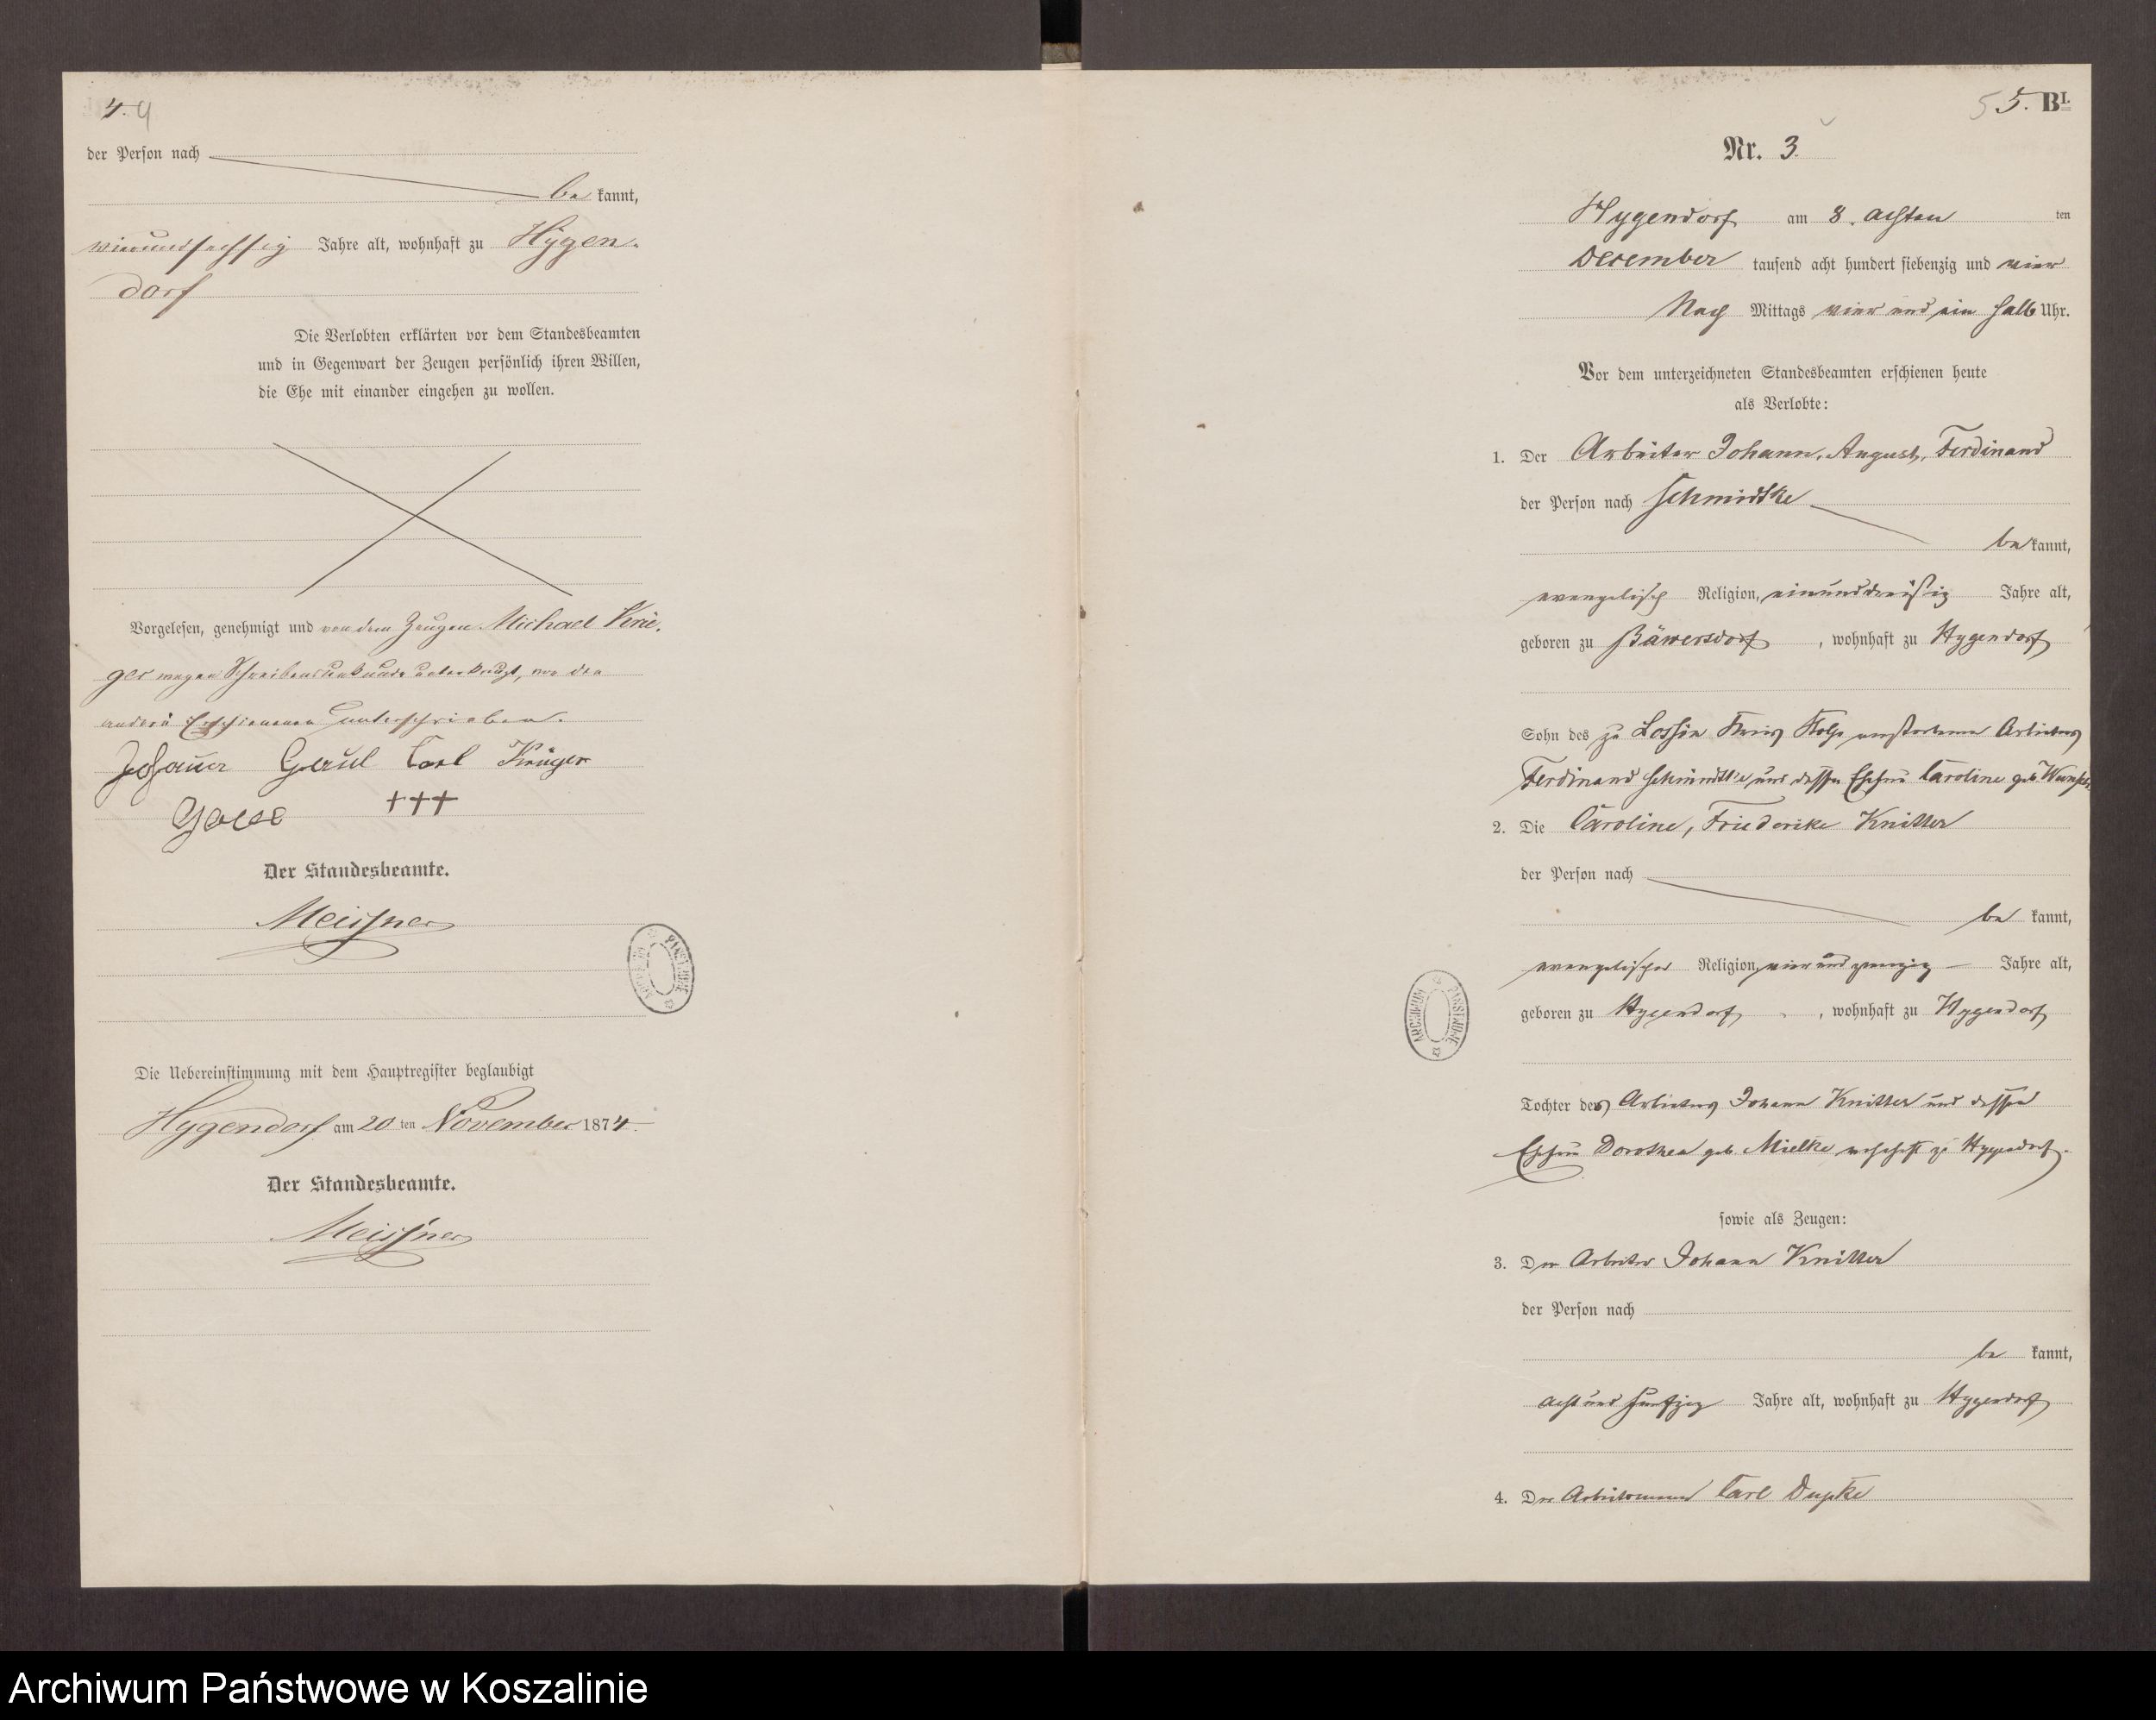 4. 4
der Person nach
be kannt,
vierundsechszig Jahre alt, wohnhaft zu Hygen-
dorf
Die Verlobten erklärten vor dem Standesbeamten
und in Gegenwart der Zeugen persönlich ihren Willen,
die Ehe mit einander eingehen zu wollen.
Vorgelesen, genehmigt und von dem Zeugen Michael Krü-
ger wegen Schreibensunkunde unterkreuzt, von den
andern Erschienenen unterschrieben.
Carl Krüger
+++
Der Standesbeamte.
Meissner
ARCHIWUM PAŃSTWOWE
Die Uebereinstimmung mit dem Hauptregister beglaubigt
Hygendorf am 20 ten November 1874.
Der Standesbeamte.
Meissner
5 5. B I.
Nr. 3.
Hygendorf am 8. achten ten
December tausend acht hundert siebenzig und vier
Nach Mittags vier und ein halb Uhr.
Vor dem unterzeichneten Standesbeamten erschienen heute
als Verlobte:
1. Der Arbeiter Johann, August, Ferdinand
der Person nach Schmidtke
be kannt,
evangelisch Religion, einunddreißig Jahre alt,
geboren zu Bäwersdorf, wohnhaft zu Hygendorf
Sohn des zu Lossin Kreis Stolp verstorbenen Arbeiters
Ferdinand Schmidtke und dessen Ehefrau Caroline geb.
2. Die Caroline, Friederike Knitter
der Person nach
be kannt,
evangelischer Religion, vier und zwanzig Jahre alt,
geboren zu Hygendorf, wohnhaft zu Hygendorf
Tochter des Arbeiters Johann Knitter und dessen
Ehefrau Dorothea geb. Mielke wohnhaft zu Hygendorf.
ARCHIWUM PAŃSTWOWE
sowie als Zeugen:
3. Der Arbeiter Johann Knitter
der Person nach
be kannt,
acht und fünfzig Jahre alt, wohnhaft zu Hygendorf
4. Der Carl
Archiwum Państwowe w Koszalinie